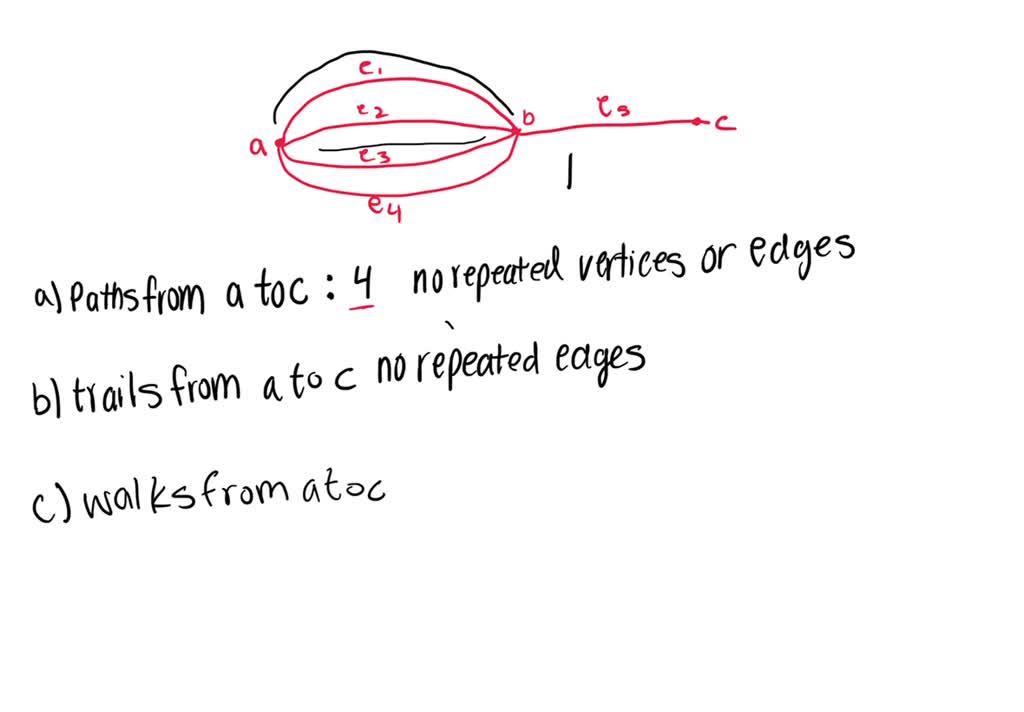 e1
e2
b
e5
c
a
e3
e4
a) Paths from a to c : 4 no repeated vertices or edges
b) trails from a to c no repeated edges
c) walks from a to c